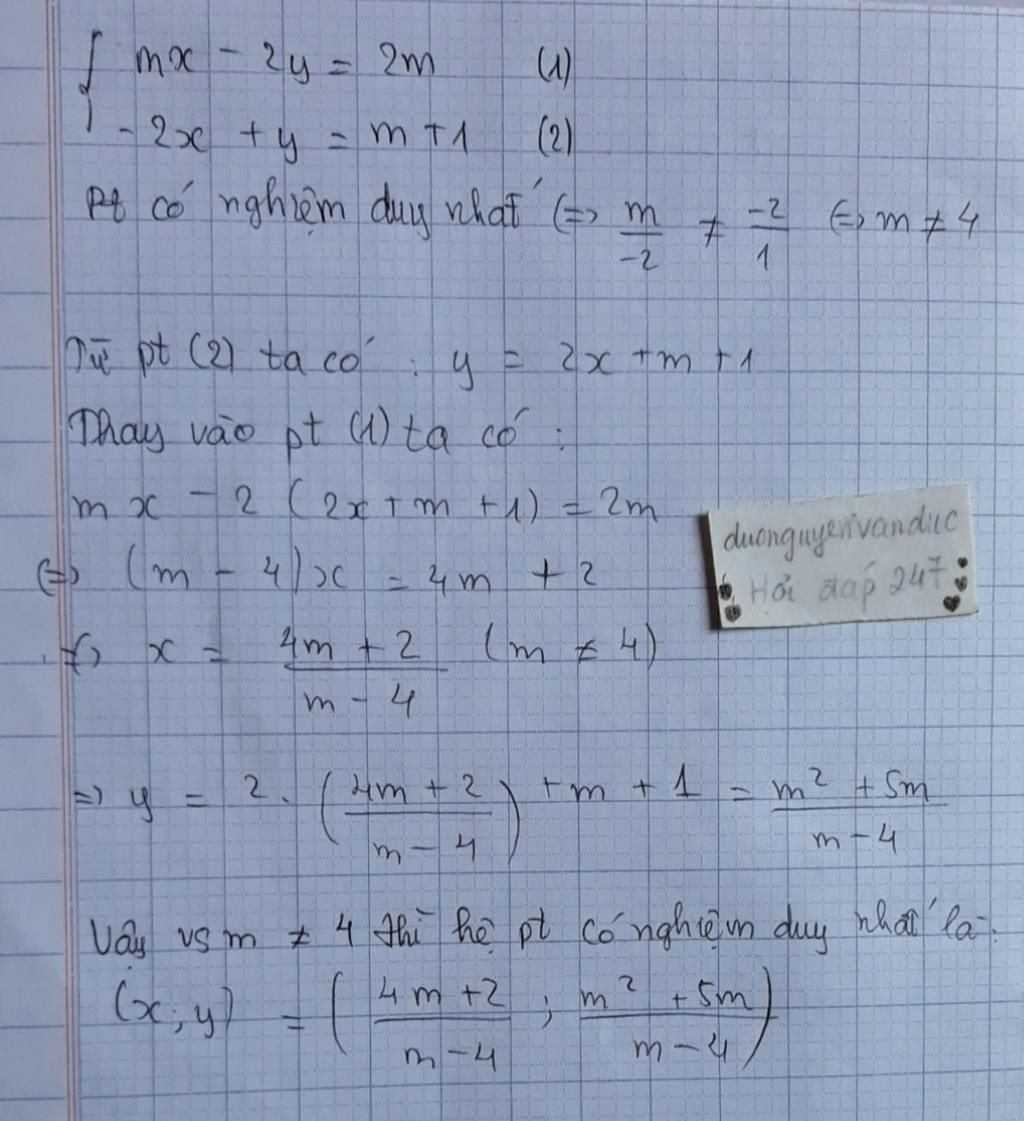 { mx - 2y = 2m (1)
- 2x + y = m + 1 (2)
Pt có nghiệm duy nhất <=> m/-2 ≠ -2/1 <=> m ≠ 4
Từ pt (2) ta có : y = 2x + m + 1
Thay vào pt (1) ta có :
mx - 2 (2x + m + 1) = 2m
<=> (m - 4)x = 4m + 2
<=> x = (4m + 2)/(m - 4) (m ≠ 4)
=> y = 2. ((4m + 2)/(m - 4)) + m + 1 = (m² + 5m)/(m - 4)
Vậy vs m ≠ 4 thì hệ pt có nghiệm duy nhất là:
(x; y) = ((4m + 2)/(m - 4) ; (m² + 5m)/(m - 4))
duonguyenvanduc
Hỏi đáp 247